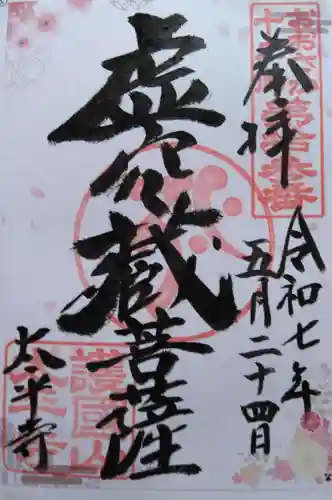 奉拝
令和七年
五月二十四日
虚空蔵菩薩
太平寺